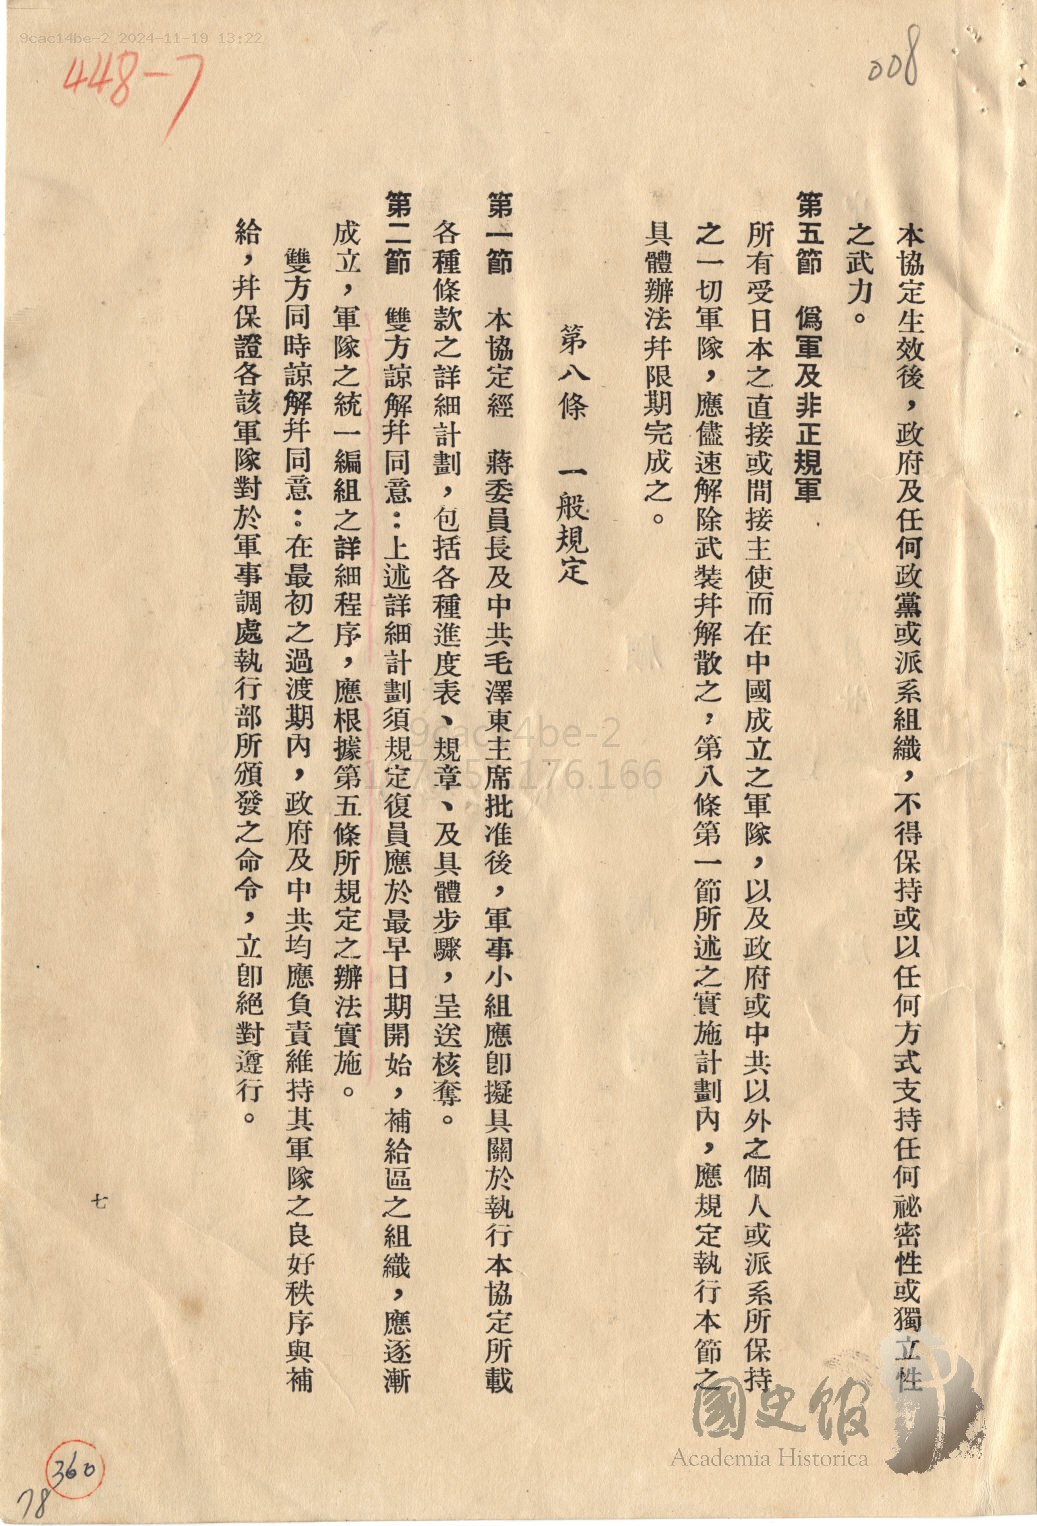 9cac14be-2 2024-11-19 13:22
448-7
008
本協定生效後，政府及任何政黨或派系組織，不得保持或以任何方式支持任何祕密性或獨立性
之武力。
第五節　僞軍及非正規軍
所有受日本之直接或間接主使而在中國成立之軍隊，以及政府或中共以外之個人或派系所保持
之一切軍隊，應儘速解除武裝幷解散之，第八條第一節所述之實施計劃內，應規定執行本節之
具體辦法幷限期完成之。
第八條　一般規定
第一節　本協定經　蔣委員長及中共毛澤東主席批准後，軍事小組應卽擬具關於執行本協定所載
各種條款之詳細計劃，包括各種進度表、規章、及具體步驟，呈送核奪。
第二節　雙方諒解幷同意：上述詳細計劃須規定復員應於最早日期開始，補給區之組織，應逐漸
成立，軍隊之統一編組之詳細程序，應根據第五條所規定之辦法實施。
雙方同時諒解幷同意：在最初之過渡期內，政府及中共均應負責維持其軍隊之良好秩序與補
給，幷保證各該軍隊對於軍事調處執行部所頒發之命令，立卽絕對遵行。
七
9cac14be-2
176.166
國史館
Academia Historica
360
78